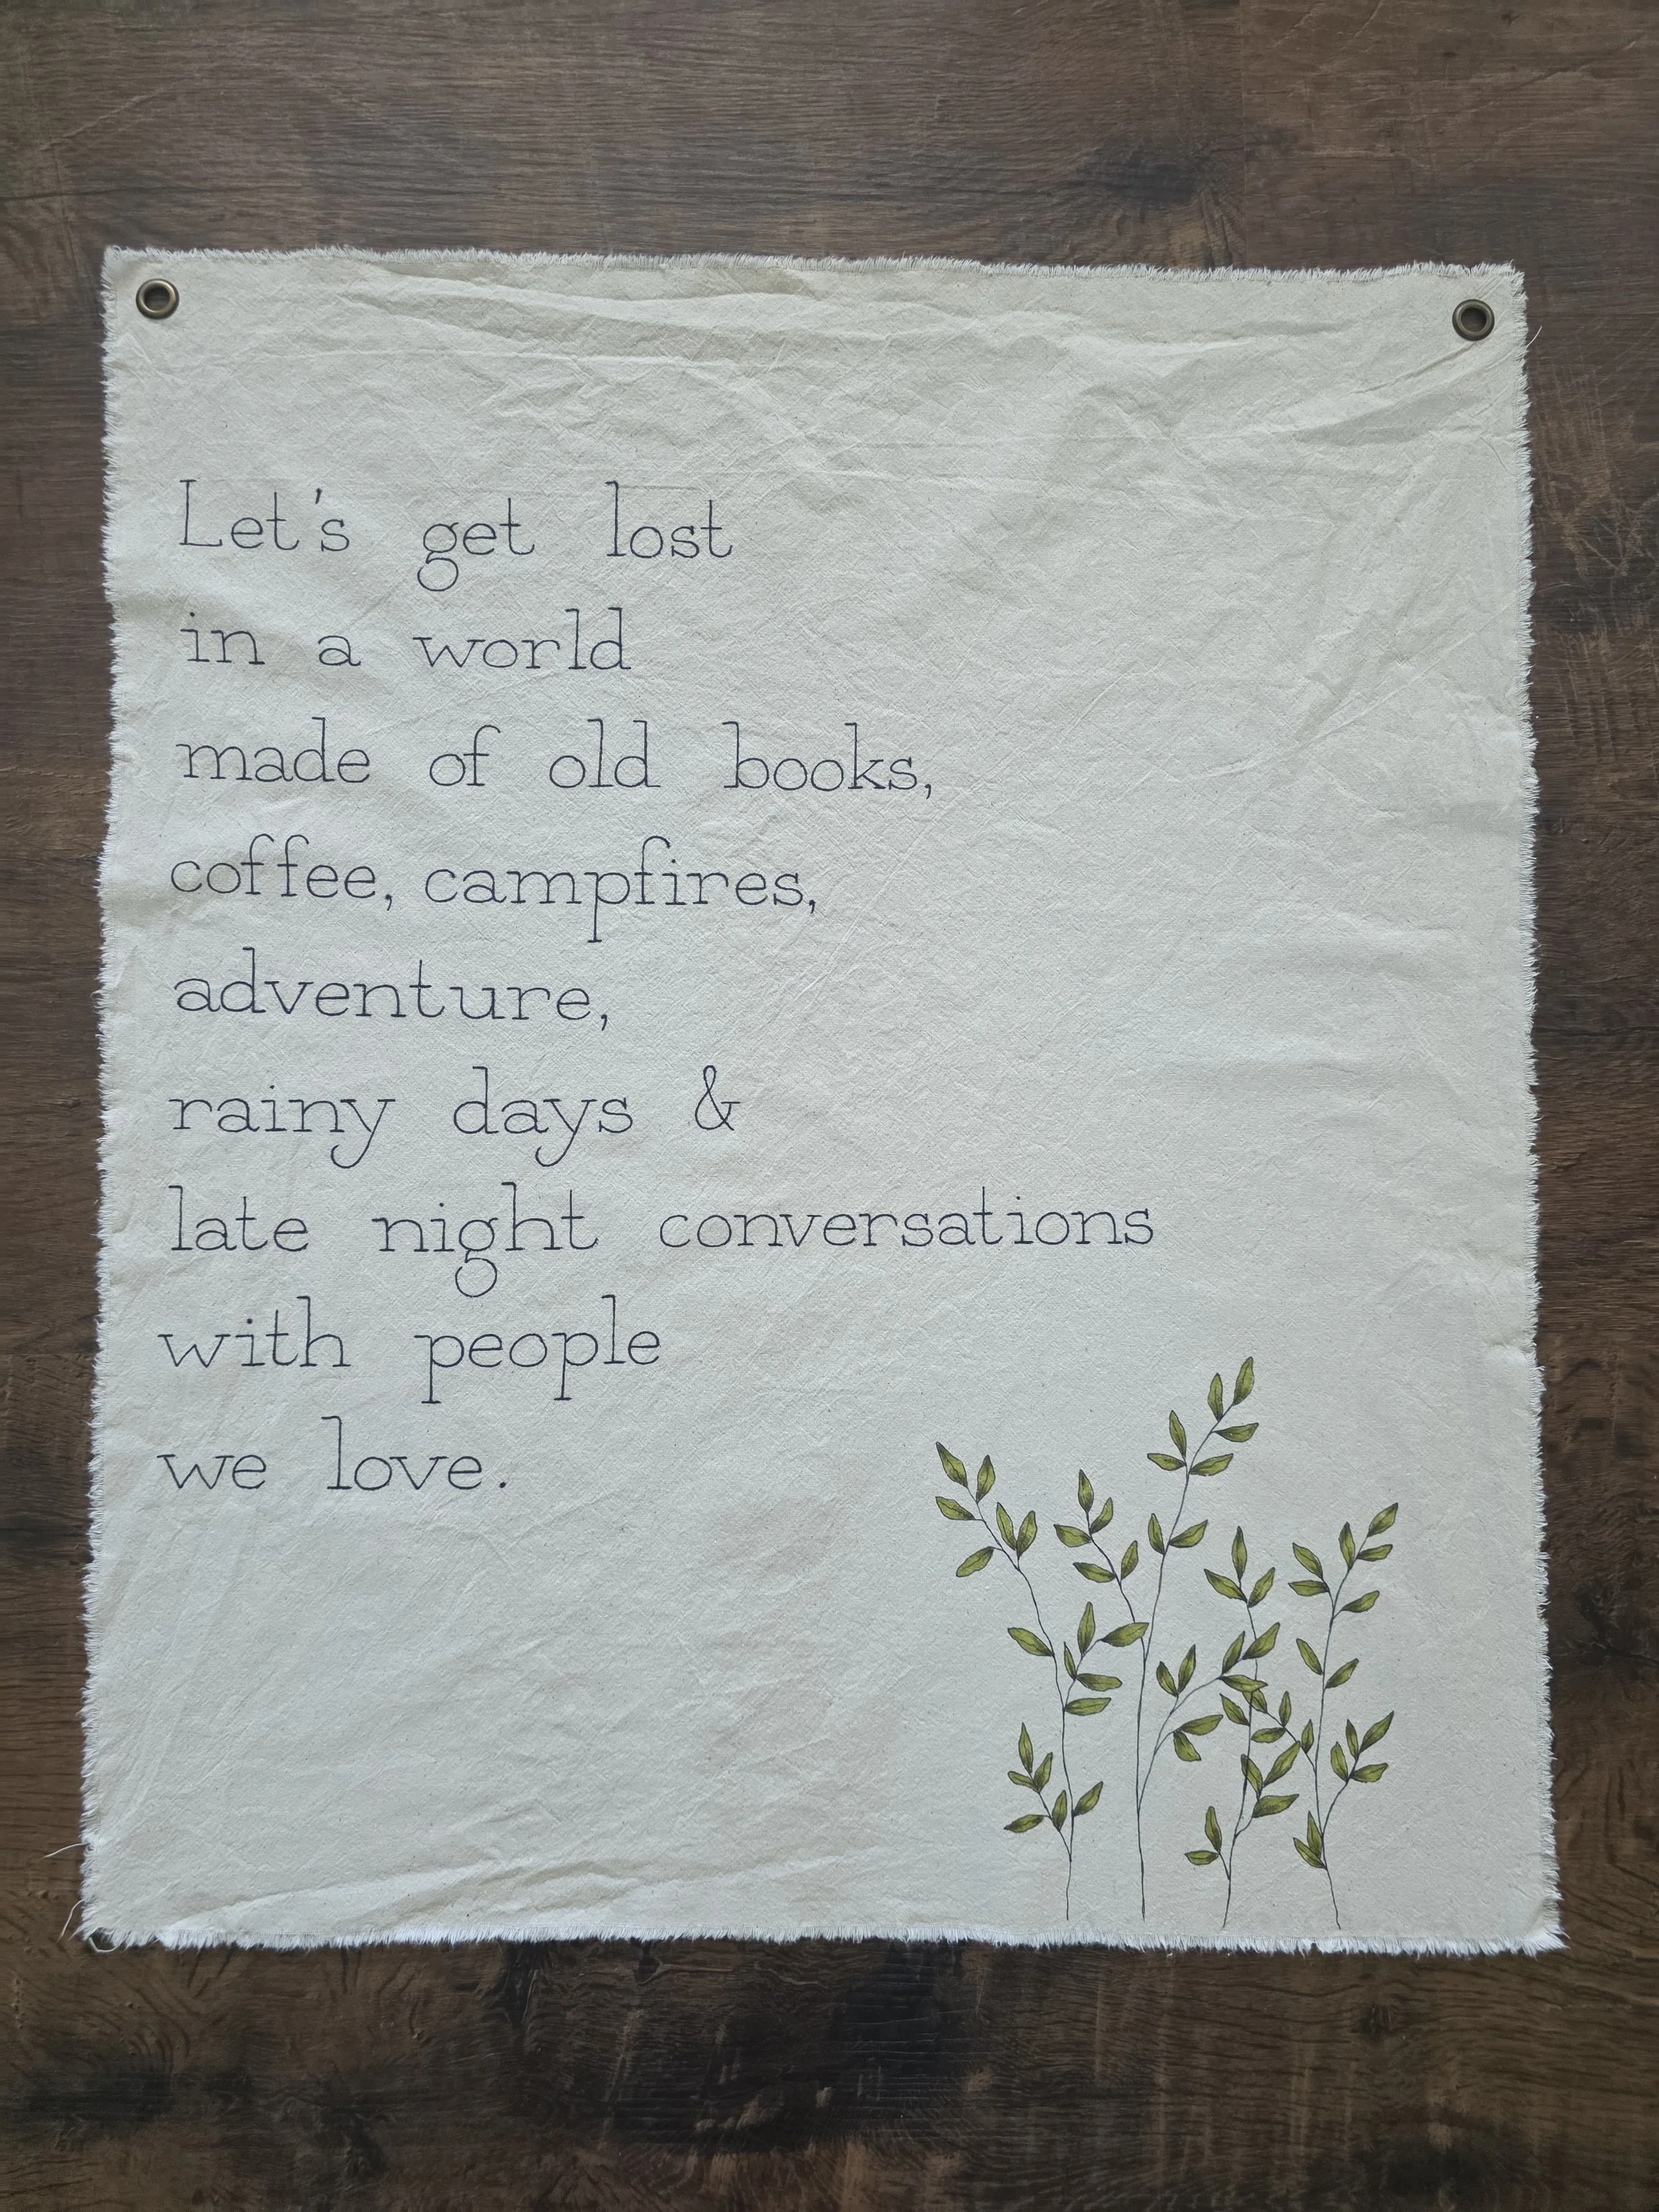 Let's get lost
in a world
made of old books,
coffee, campfires,
adventure,
rainy days &
late night conversations
with people
we love.